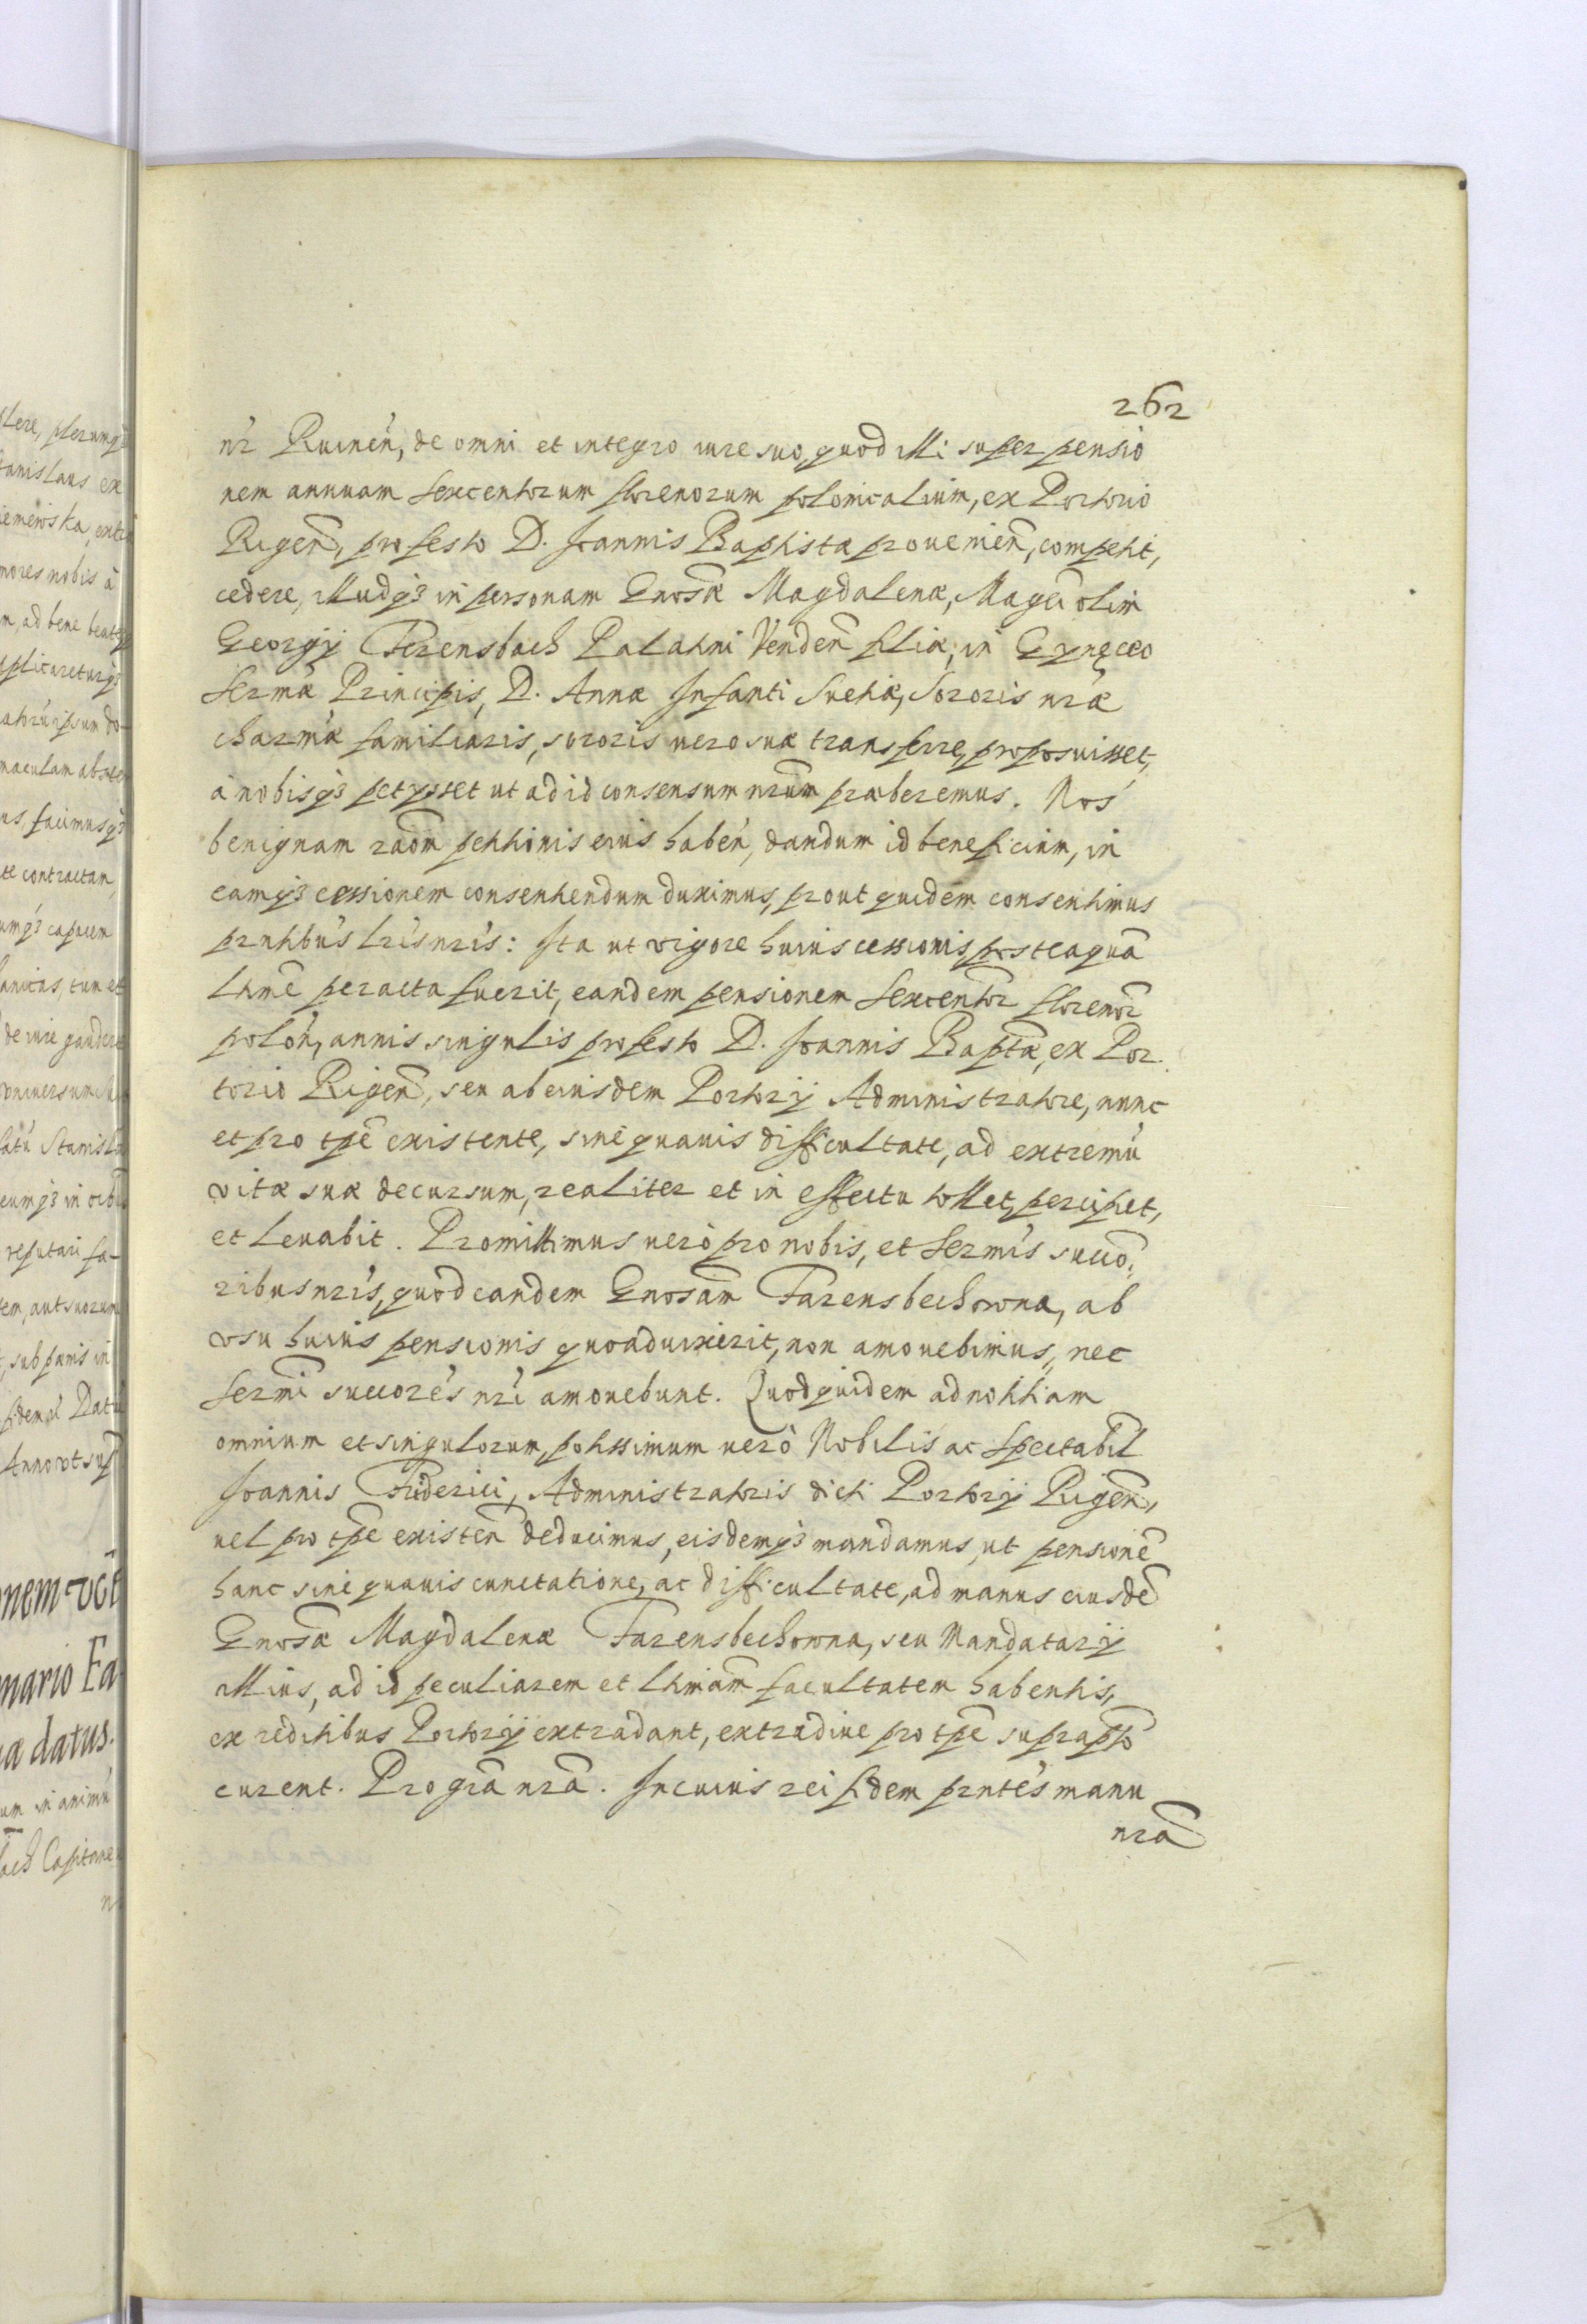 262
nr̃ Ruinen̄, de omni et integro iure suo, quod illi super pensio
nem annuam sexcentorum florenorum polonicalium, ex Portorio
Rigeñ, pro festo D. Joannis Baptistæ prouenien̄, competit,
cedere, illudq3 in personam Gnosæ Magdalenæ, Mageī olim
Georgij Ferensbach Palatini Venden̄ filiæ, in Gynęceo
Sermæ Principis, D. Annæ Infanti Suetiæ, Sororis nræ
charmæ familiaris, sororis uero suæ transferre, proposuisset,
à nobisq3 petysset ut ad id consensum nrūm præberemus. Nos
benignam raōm petitionis eius haben̄, dandum id beneficium, in
eamq3 cessionem consentiendum duximus, prout quidem consentimus
prntibus lris nris: Ita ut vigore huius cessionis posteaquā
ltimē peracta fuerit, eandem pensionem sexcentor̄ florenor̄
polon̄, annis singulis pro festo D. Joannis Baptæ, ex Por
torio Rigen̄, seu ab eiusdem Portorij Administratore, nunc
et pro tpē existente, sine quauis difficultate, ad extremū
vitæ suæ decursum, realiter et in effectu tollet, percipiet,
et leuabit. Promittimus uerò pro nobis, et Sermis succo
ribus nris, quod eandem Gnosam Farensbechowna, ab
vsu huius pensionis quoad uixerit, non amouebimus, nec
sermi succores nri amouebunt. Quod quidem ad notitiam
omnium et singulorum, potissimum uerò Nobilis ac Spectabil
Joannis Friderici, Administratoris dicti Portorij Rigen̄,
uel pro tpē existen̄ deducimus, eisdemq3 mandamus, ut pensionē
hanc sine quauis cunctatione, ac difficultate, ad manus eiusdē
Gnosæ Magdalenæ Farensbechowna, seu Mandatarij
illius, ad id peculiarem et ltimam facultatem habentis,
ex reditibus Portorij extradant, extradiue pro tpē suprapto
curent. Pro grā nrā. In cuius rei fidem prntes manu
nrā